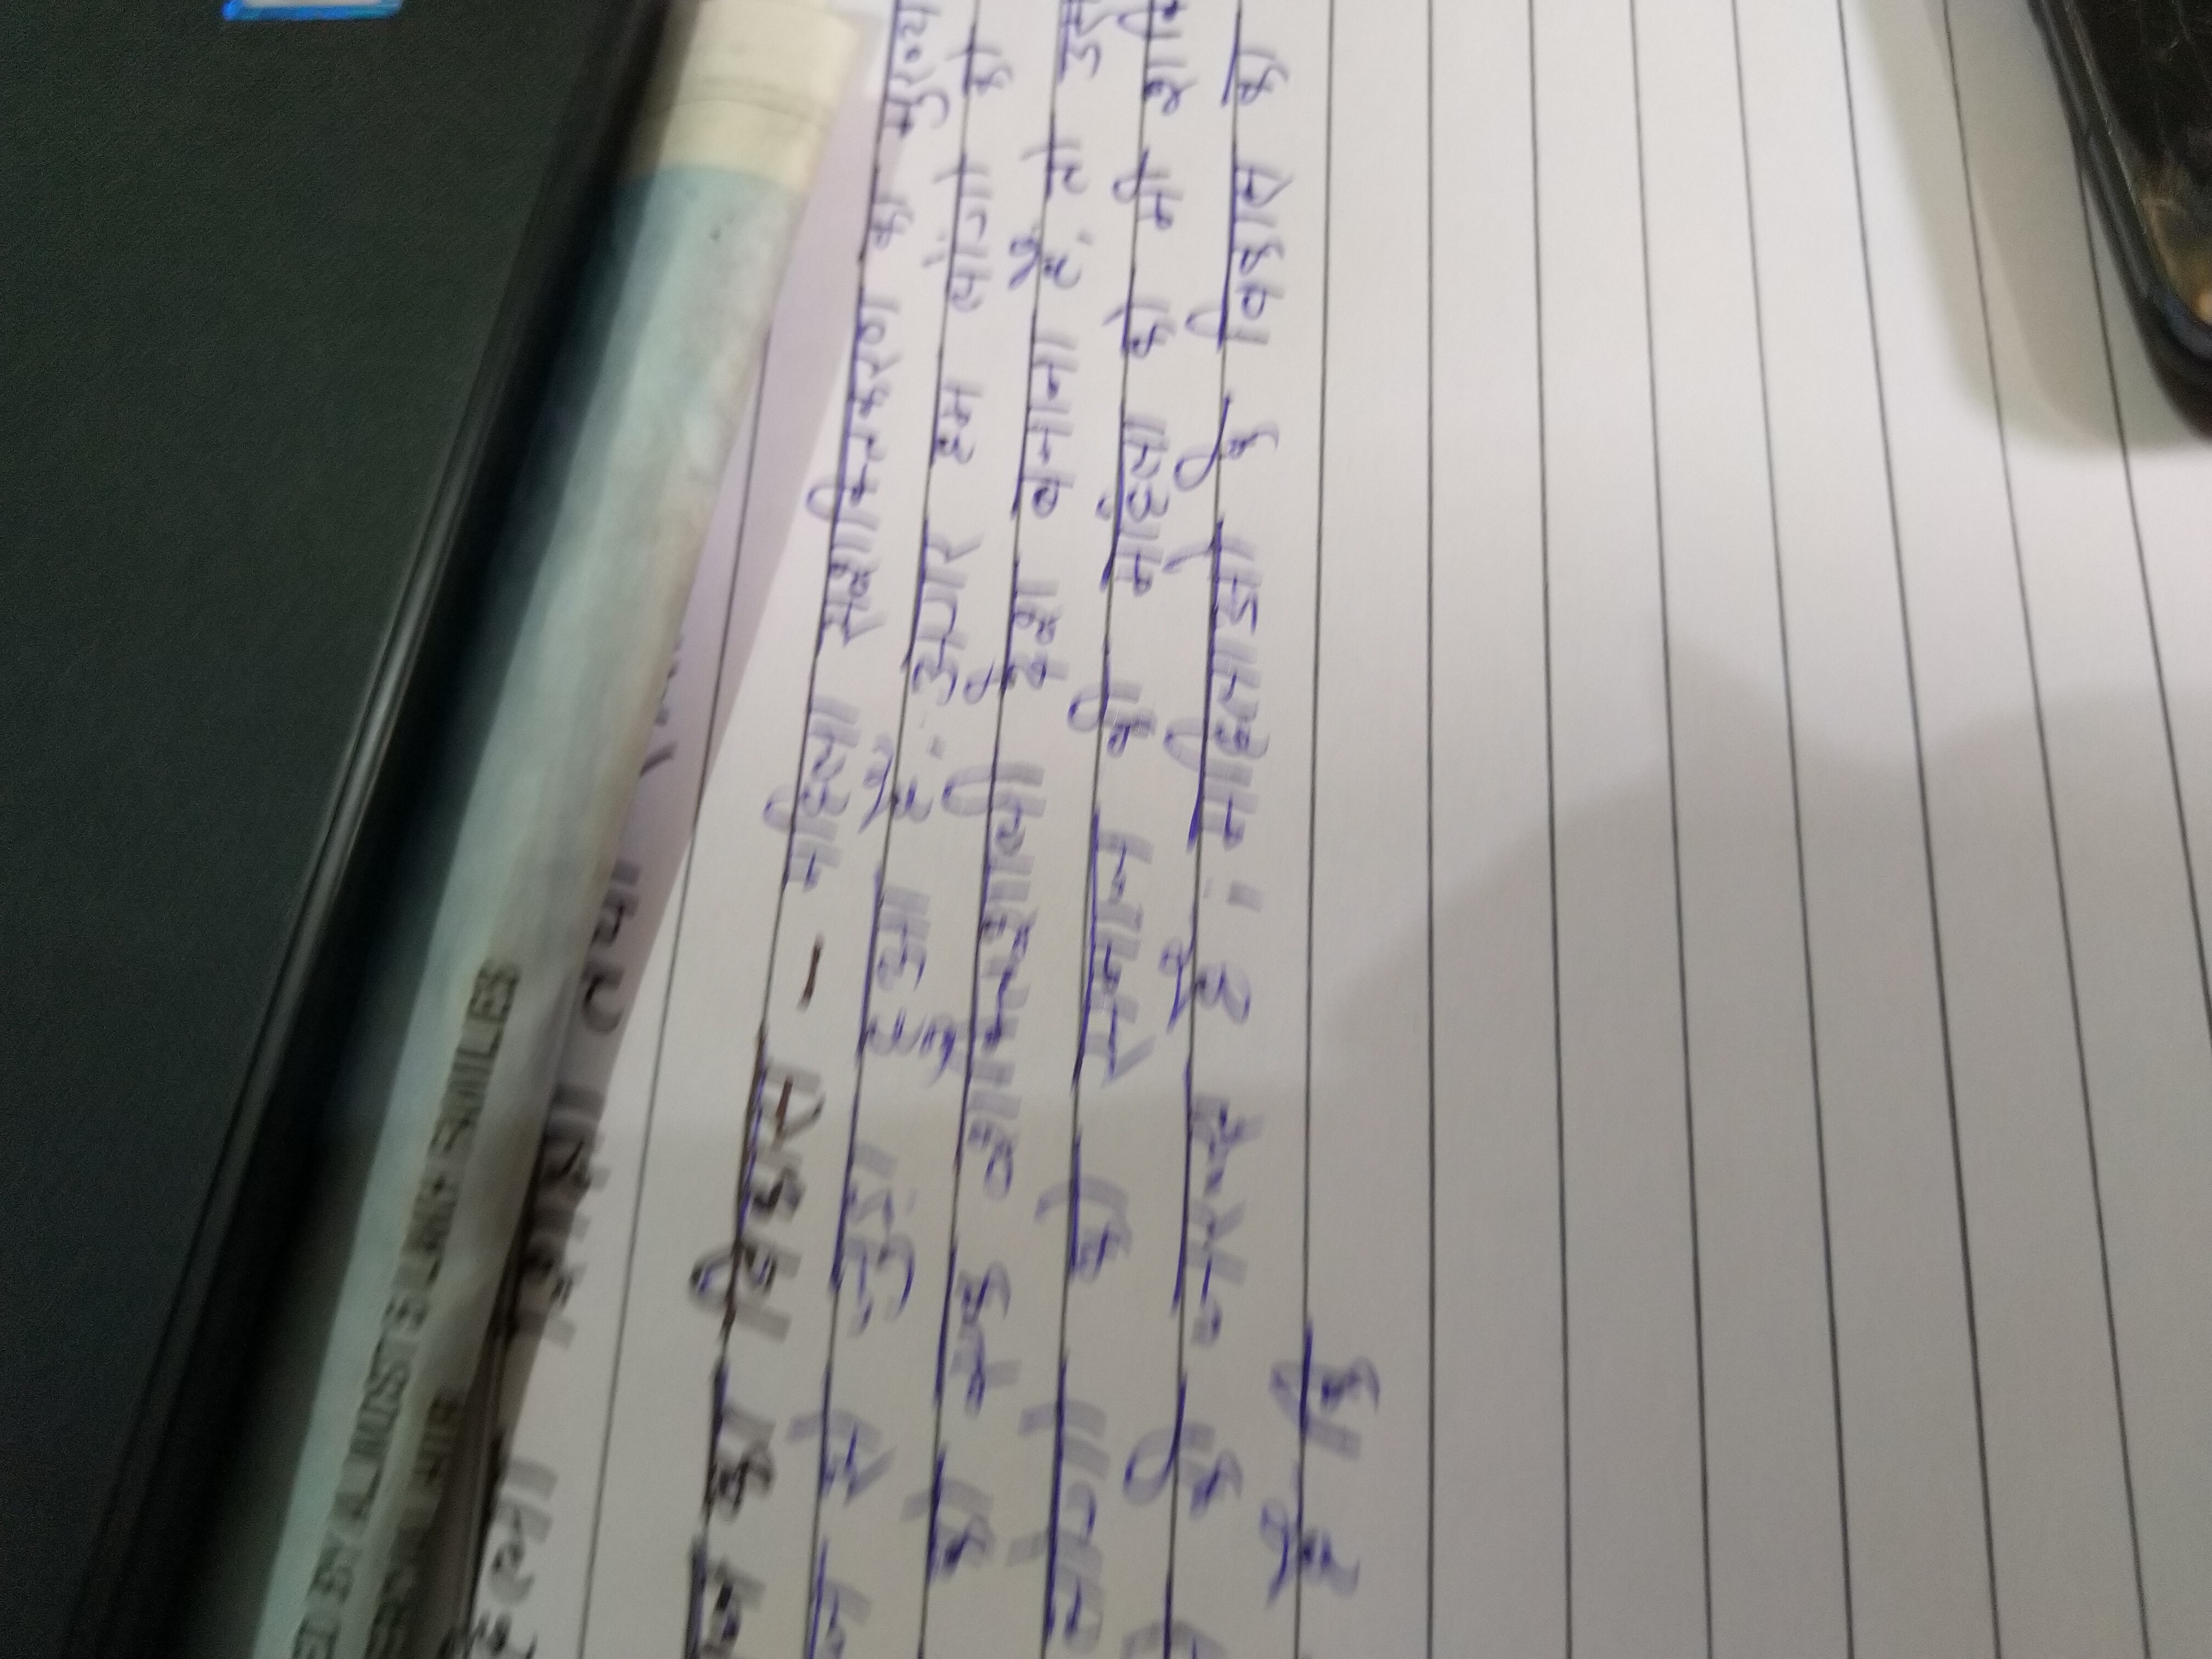 BY ALMOST 5 LAKH FAMILIES
शिक्षा तथा
का विकास - महिला सशक्तिकरण का मुख्य
से जुड़ा हुआ है, अगर हम लोंगो को
को एक शक्तिशाली देश बनाना है, तो
लोगो को समाज की महिला को भी
की जरूरत है, महिलाओ के विकास को
है कि